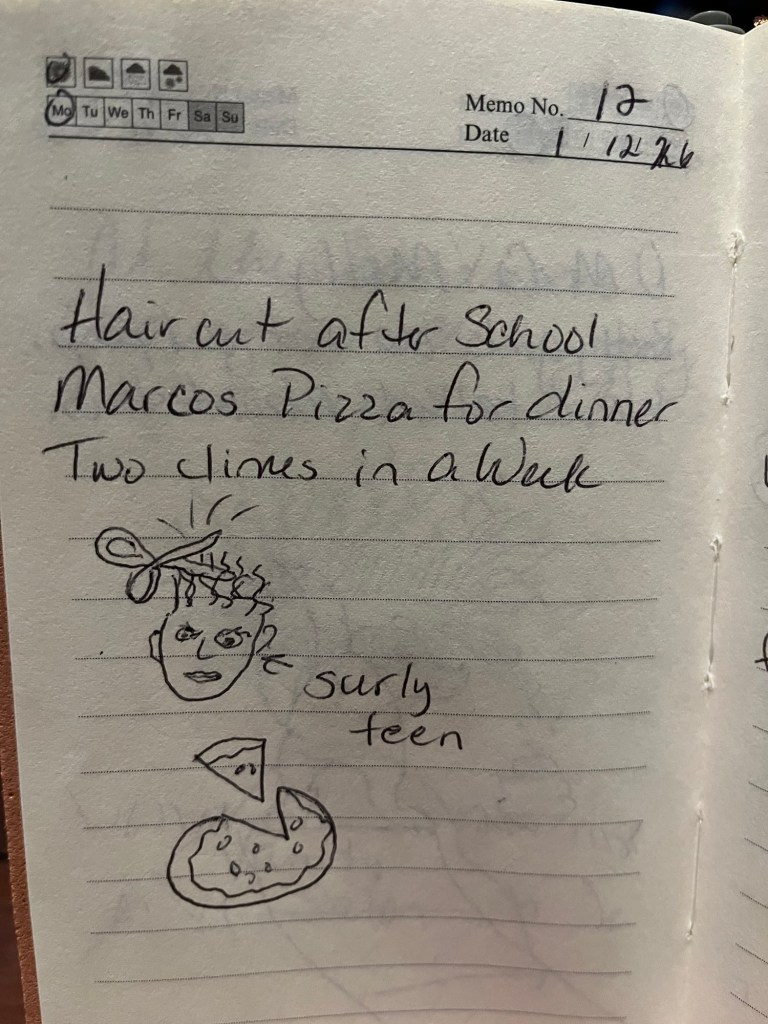 Mo Tu We Th Fr Sa Su
Memo No. 12
Date 1 / 12 / 26
Hair cut after School
Marcos Pizza for dinner
Two times in a Week
surly
teen